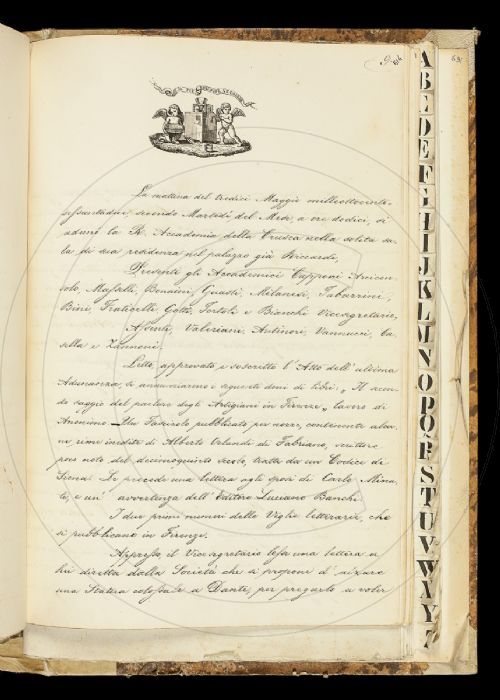 La mattina del tredici Maggio milleottocento-
sessantadue, secondo Martedì del Mese, a ore dodici, si
adunò la R. Accademia della Crusca nella solita sa-
la di sua residenza nel palazzo già Riccardi,
Presenti gli Accademici Capponi Arcicon-
solo, Mafalli Bonaini, Guasti, Milanesi, Tabarrini,
Bini, Fraticelli, Gotti, Tortoli e Bianchi Vicesegretario,
Assenti, Valeriani, Antinori, Vannucci, Ca-
sella e Zannoni.
Letto, approvato e soscritto l'Atto dell'ultima
Adunanza, si annunziarono i seguenti doni di libri: „Il secon-
do saggio del parlare degli Artigiani in Firenze„ lavoro di
Anonimo. Un Fascicolo pubblicato per nozze, contenente alcu-
ne rime inedite di Alberto Orlando da Fabriano, scrittore
poco noto del decimoquinto secolo, tratte da un Codice di
Siena. Le precede una lettera agli sposi di Carlo Mina-
ti, e un' avvertenza dell'Editore Luciano Banchi.
I due primi numeri delle Veglie letterarie, che
si pubblicano in Firenze.
Appresso il Vicesegretario lesse una lettera a
lui diretta dalla Società che si propone d'alzare
una Statua colossale a Dante, per pregarlo a voler
A
B
C
D
E
F
G
H
I
J
K
L
M
N
O
P
Q
R
S
T
U
V
W
X
Y
Z
63